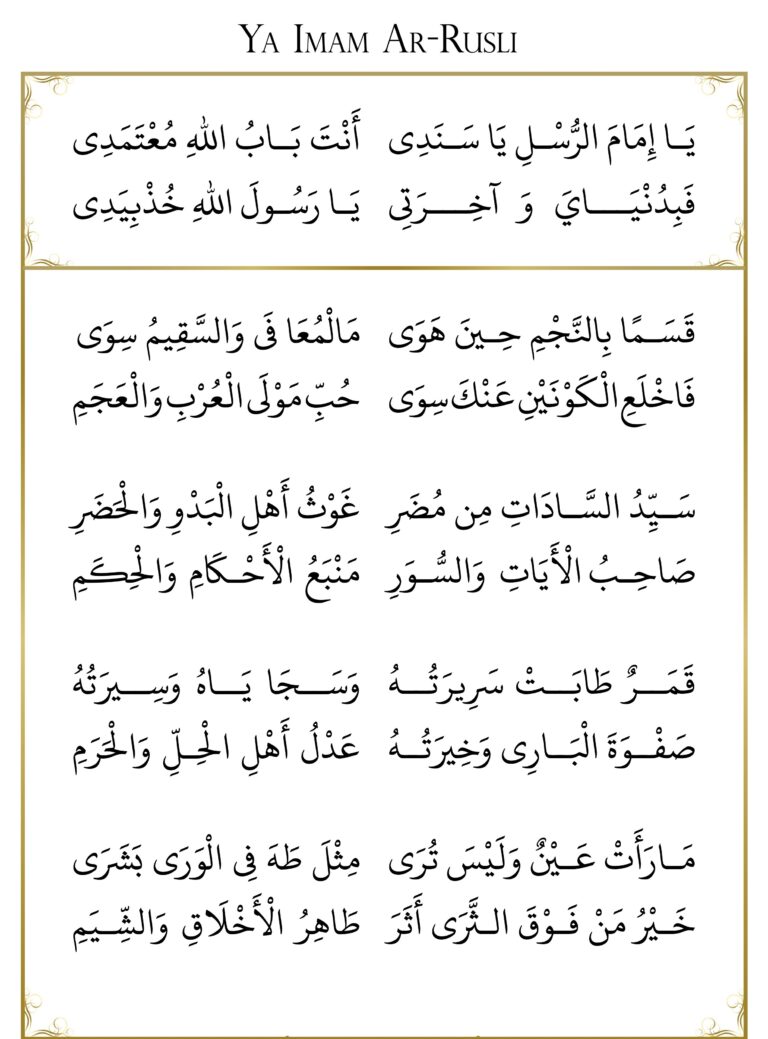 YA IMAM AR-RUSLI
يَـا إِمَامَ الرُّسْـلِ يَا سَـنَدِى أَنْتَ بَـابُ اللهِ مُعْتَمَدِى
فَبِدُنْيَـــايَ وَ آخِـــرَتِى يَـا رَسُـولَ اللهِ خُذْبِيَدِى
قَسَـمًا بِالنَّجْمِ حِـينَ هَوَى مَالْمُعَا فَى وَالسَّقِيمُ سِوَى
فَاخْلَعِ الْكَوْنَيْنِ عَنْكَ سِوَى حُبِّ مَوْلَى الْعُرْبِ وَالْعَجَمِ
سَـيِّدُ السَّـادَاتِ مِن مُضَرِ غَوْثُ أَهْلِ الْبَدْوِ وَالْحَضَرِ
صَاحِـبُ الْأَيَاتِ وَالسُّـوَرِ مَنْبَعُ الْأَحْـكَامِ وَالْحِكَمِ
قَمَـــرٌ طَابَـــتْ سَرِيرَتُـــهُ وَسَـــجَا يَـــاهُ وَسِـــيرَتُهُ
صَفْـوَةَ الْبَـارِى وَخِيرَتُـهُ عَدْلُ أَهْلِ الْحِـلِّ وَالْحَرَمِ
مَـارَأَتْ عَـيْنٌ وَلَيْسَ تُرَى مِثْلَ طَهَ فِى الْوَرَى بَشَرَى
خَـيْرُ مَنْ فَـوْقَ الـثَّرَى أَثَرَ طَاهِرُ الْأَخْلَاقِ وَالشِّـيَمِ